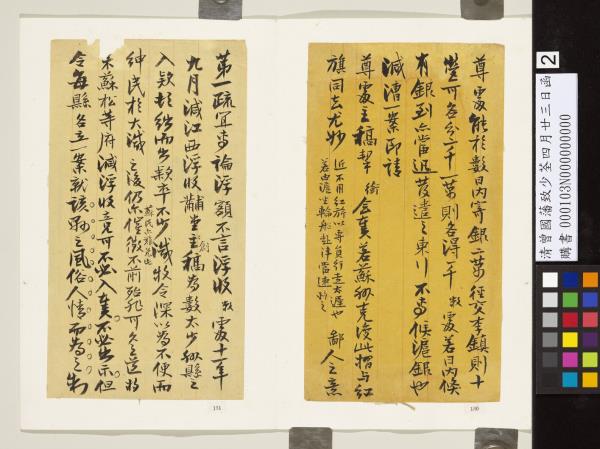 尊處能於數日內寄銀一萬徑交李鎮則十
營可各分一千一萬則各得一千敝處若日內候
有銀到亦當迅發遣之東行不專候滬銀也
減漕一案即請
尊處主稿挈銜會奏若蘇州克復此摺與紅
旗同去尤妙
近不用紅旗以專弁行走太遲也
若由滬坐輪船赴津當速
鄙人之意
第一疏宜專論浮額不言浮收敝處十一年
九月減江西浮收黼堂主稿為數太少州縣之
入款頓絀而出款率不少減牧令深以為不便而
紳民於大減之後仍不催徵不前
蘇松等府減浮收竟可不必入奏不必出示但
令每縣各立一案就該縣之風俗人情而為之制
131
130
清曾國藩致少荃四月廿三日函
購書 000103N000000000
2